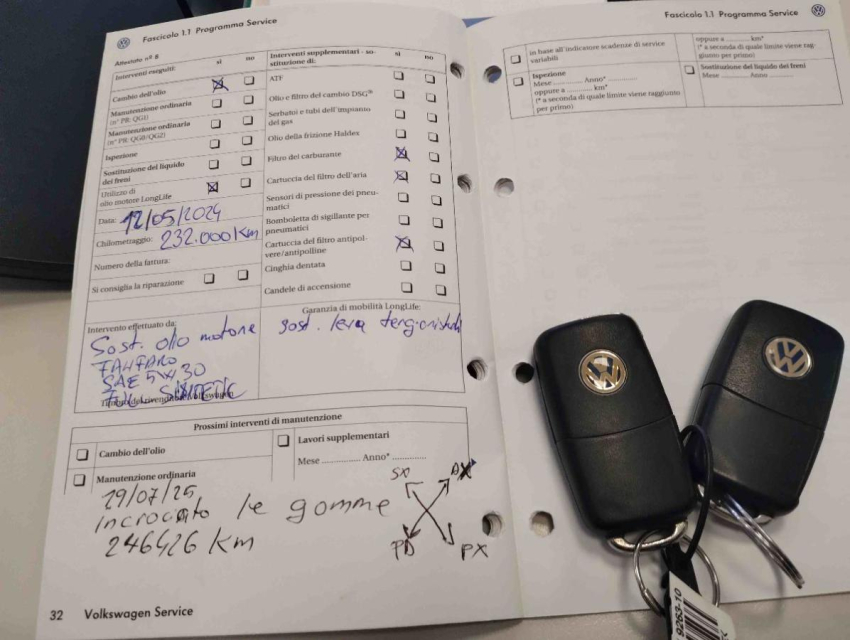 Fascicolo 1.1 Programma Service
Attestato n° 8
Interventi eseguiti:
sì
no
Cambio dell'olio
Manutenzione ordinaria
(n° PR: QG1)
Manutenzione ordinaria
(n° PR: QG0/QG2)
Ispezione
Sostituzione del liquido
dei freni
Utilizzo di
olio motore LongLife
Data: 12/05/2024
Chilometraggio: 232.000 Km
Numero della fattura:
Si consiglia la riparazione
Interventi supplementari - so-
stituzione di:
sì
no
ATF
Olio e filtro del cambio DSG®
Serbatoi e tubi dell'impianto
del gas
Olio della frizione Haldex
Filtro del carburante
Cartuccia del filtro dell'aria
Sensori di pressione dei pneu-
matici
Bomboletta di sigillante per
pneumatici
Cartuccia del filtro antipol-
vere/antipolline
Cinghia dentata
Candele di accensione
Intervento effettuato da:
Sost. olio motore
FANFARO
SAE 5W30
Garanzia di mobilità LongLife:
sost. leva
Prossimi interventi di manutenzione
Cambio dell'olio
Manutenzione ordinaria
Lavori supplementari
Mese .......... Anno* ..........
19/07/25
incrociato le gomme
246426 Km
SX
PX
32 Volkswagen Service
Fascicolo 1.1 Programma Service
in base all'indicatore scadenze di service
variabili
Ispezione
Mese .......... Anno* ..........
oppure a .......... km*
(* a seconda di quale limite viene raggiunto
per primo)
oppure a .......... km*
(* a seconda di quale limite viene rag-
giunto per primo)
Sostituzione del liquido dei freni
Mese .......... Anno ..........
9263-10